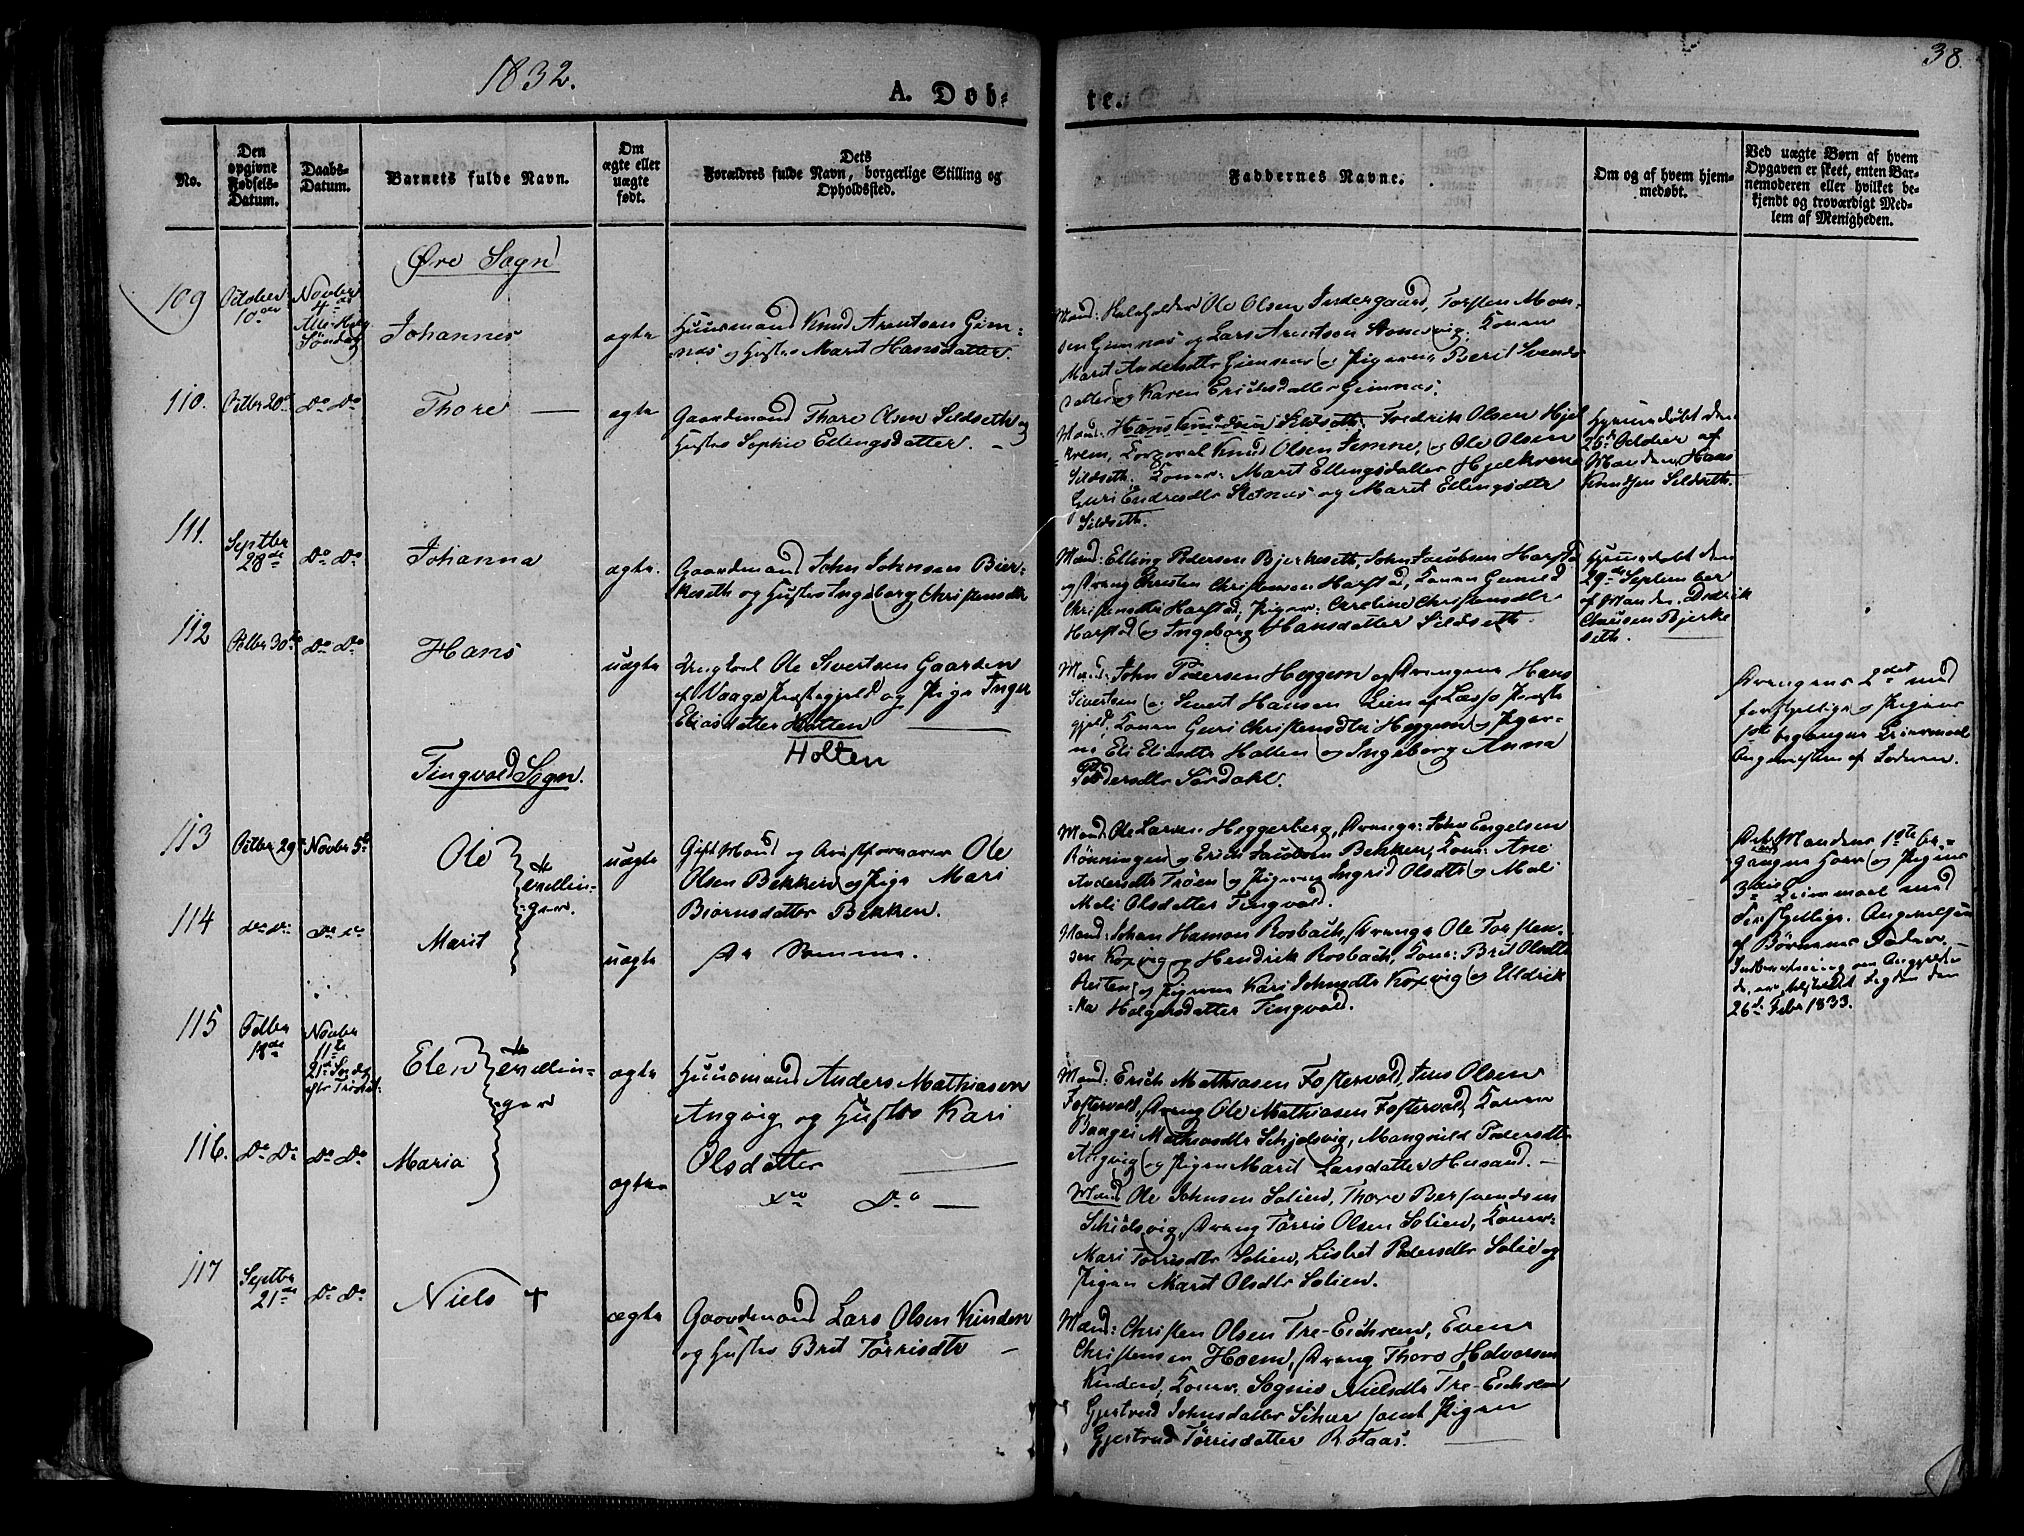 1832.
A. Døb-
te.
38.
No.
Den
opgivne
Fødsels-
Datum.
Daabs-
Datum.
Barnets fulde Navn.
Om
ægte eller
uægte
født.
Dets
Forældres fulde Navn, borgerlige Stilling og
Opholdssted.
Faddernes Navne.
Om og af hvem hjem-
medøbt.
Ved uægte Børn af hvem
Opgaven er skeet, enten Bar-
nemoderen eller hvilket be-
kjendt og troværdigt Med-
lem af Menigheden.
Øre Sogn
109
October
10de
Novbr
4de
Alle Helg
Søndag
Johannes
ægte
Huusmand Knud Arentsen Gim-
næs og Hustro Marit Hansdatter.
Mænd: Ole Olsen Indergaard, Torsten Mon-
sen Gimnæs og Lars Arentsen Konen
Marit Andersdtr Gimnæs og Pigerne Berit Svends-
datter og Karen Erichsdatter Gimnæs.
110.
Octbr 20de
Do Do
Thore
ægte
Gaardmand Thore Olsen Sildseth og
Hustro Sophie Ellingsdatter.
Mænd: Hans Knudsen Sildseth, Fredrik Olsen Hjel-
krem, Corporal Knud Olsen Jemne, og Ole Olsen
Sildseth. Koner: Marit Ellingsdatter Hjelkrem
Guri Endresdtr og Marit Ellingsdtr
Sildseth.
Hjemmedøbt den
26de October af
Manden Hans
Knudsen Sildseth.
111.
Septbr
28de
Do Do
Johanna
ægte.
Gaardmand John Johnsen Bier-
keseth og Hustro Ingeborg Christensdtr
Mænd: Elling Pedersen Bjerkeseth, John Jacobsen Harstad
og Dreng Christen Christensen Harstad, Konen Gunild
Christensdtr Harstad, Piger: Christensdtr
Harstad og Ingeborg Hansdatter Sildseth.
Hjemmedøbt den
29de September
af Manden Didrik
Clausen Bjerke
seth.
112
Octbr 30te
Do Do
Hans
uægte
Ungkarl Ole Sivertsen Gaarden
af Vaage Præstegjeld og Pige Inger
Eliasdatter Holten
Holten
Mænd: John Pedersen Heggem og Drengene Hans
Sivertsen og Sivert Hansen Lien af Læssø Præste
gjeld, Konen Guri Christensdtr Heggem og Piger-
ne Eli Eliasdtr Holten og Ingeborg Anna
Pedersdtr Sørdahl.
Drengens 2det med
forskjellige og Pigens
1ste begangne Leiermaal
Angivelsen af Faderen.
Tingvold Sogn.
113
Octbr 29de
Novbr 5te
Ole
Tvillin-
ger.
uægte
Gift Mand og Ole
Olsen Bekken og Pige Mari
Biørnsdatter Bekken.
Mænd: Ole Larsen Heggerberg, Drenge: John Engelsen
Rønningen og Erich Jacobsen Bekken, Kone: Ane
Andersdtr Trøen og Pigerne Ingrid Olsdtr og Mali
Mali Olsdatter Tingvold.
Mandens 1ste be-
gangne Hoer og Pigens
3die Leiermaal med
Forskjellige. Angivelsen
af Børnenes Fader.
Indberetning om
26de Febr 1833.
114
Do Do
Do Do
Marit
uægte
De Samme.
Mænd: Johan Hansen Rosbach, Drenge Ole Torsten-
sen Koxvig og Hendrik Rosbach, Kone: Brit Olsdtr
Reiten og Pigerne Kari Johnsdtr Koxvig og Elldrik-
ka Holgersdatter Tingvold.
115
Octbr
18de
Novbr
11te
21de Søndag
efter Trinit.
Elen
Tvillin-
ger
ægte
Huusmand Anders Mathiasen
Angvig og Hustro Kari
Olsdatter
Mænd: Erich Mathiasen Fostervold, Jens Olsen
Fostervold, Dreng Ole Mathiasen Fostervold, Konen
Mathiasdtr Schjølsvig, Mangnild Pedersdtr
Angvig og Pigen Marit Larsdatter Husand.
116.
Do Do
Do Do
Maria
ægte
Do Do
Mænd Ole Johnsen Solien, Thore Bersvendsen
Schiølsvig, Dreng Tørris Olsen Solien, Koner:
Mari Tørrisdtr Solien, Lisbet Pedersdtr Solie og
Pigen Marit Olsdtr Solien.
117
Septbr
21de
Do Do
Niels +
ægte
Gaardmand Lars Olsen Kinden
og Hustro Brit Tørrisdtr
Mænd: Christen Olsen Tre-Eichrem, Even
Christensen Hoem, Dreng Thore Halvorsen
Kinden, Koner: Sognie Nielsdtr Tre-Eichrem
Gjertrud Johnsdatter samt Pigen
Gjertrud Tørrisdatter Rotaas.